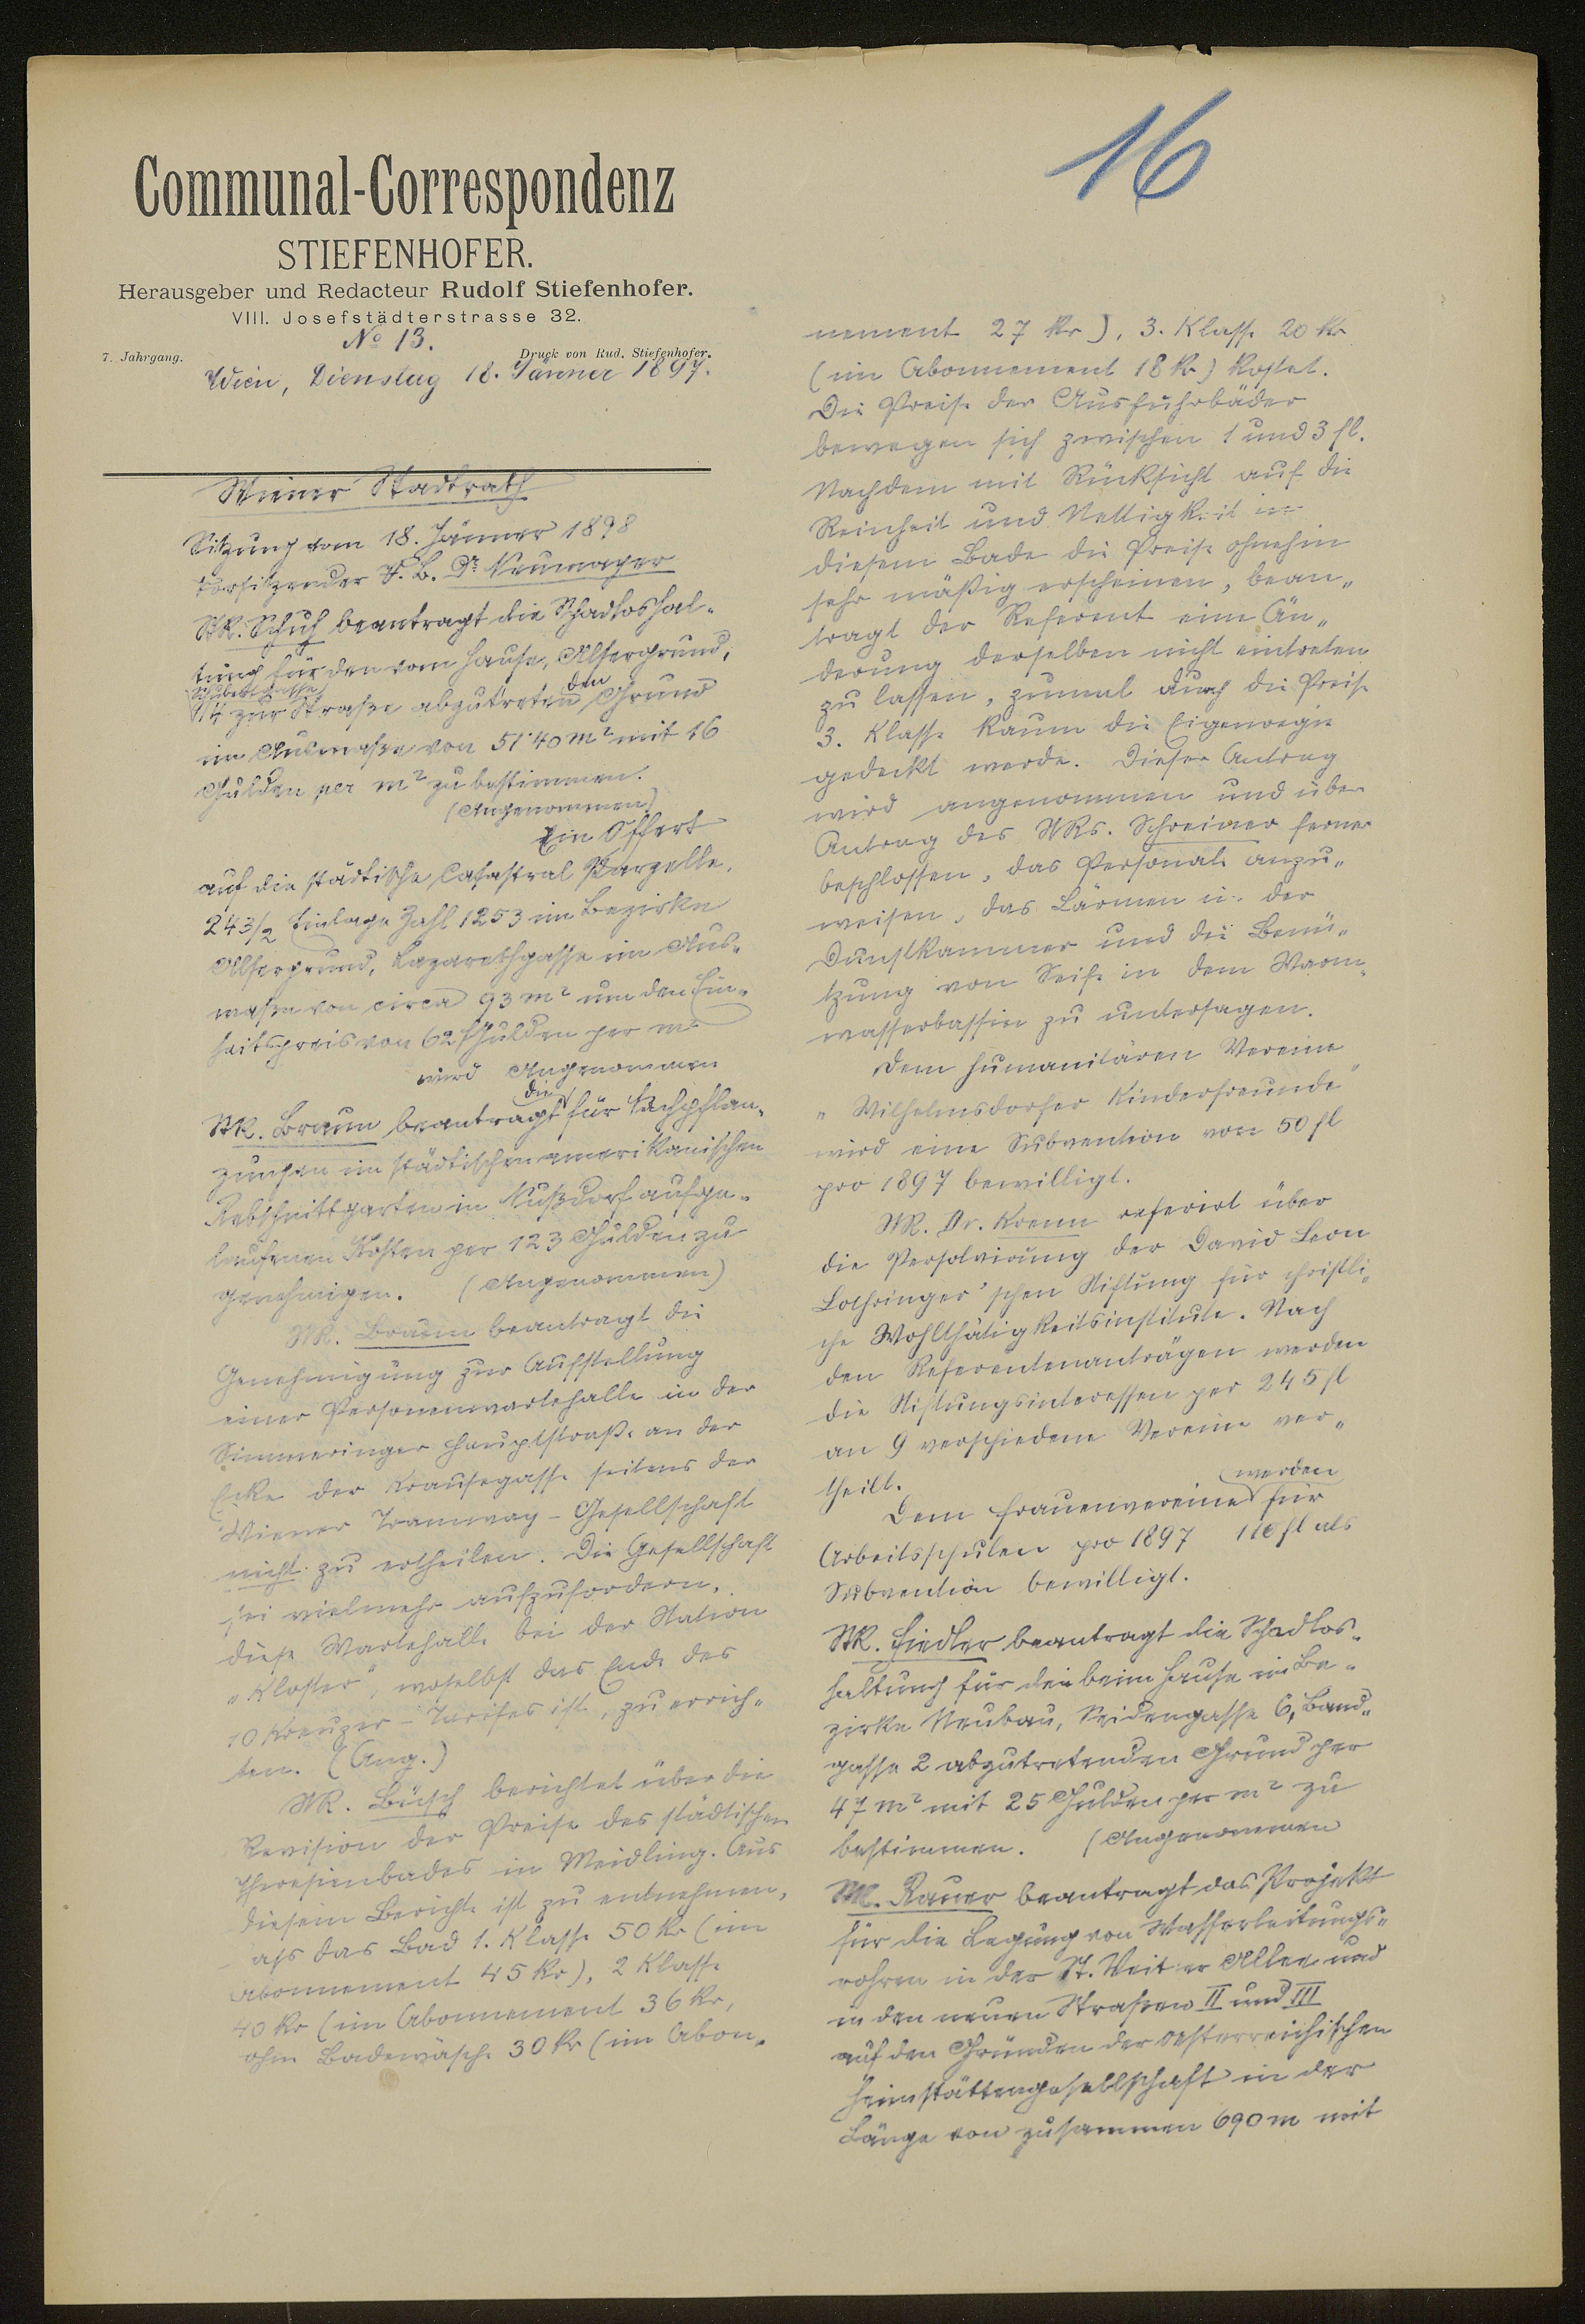 16
Communal-Correspondenz
STIEFENHOFER.
Herausgeber und Redacteur Rudolf Stiefenhofer.
VIII. Josefstädterstrasse 32.
No 13.
7. Jahrgang. Druck von Rud. Stiefenhofer.
Wien, Dienstag 18. Jänner 1897.
Wiener Stadtrath
Sitzung vom 18. Jänner 1898
Vorsitzender V. B. Dr Neumayer
StR. Schuh beantragt die Schadloshal-
tung für den vom Hause, Alsergrund,
14 zur Straße abzutretenden Grund
im Ausmaße von 51·40 m² mit 16
Gulden per m² zu bestimmen.
(Angenommen)
Ein Offert
auf die städtische Catastral Parzelle,
243/2 Einlage Zahl 1253 im Bezirke
Alsergrund, Lazarethgasse im Aus-
maße von circa 93 m² um den Ein-
heitspreis von 62 Gulden per m²
wird Angenommen
StR. Braun beantragt die für Nachpflan-
zungen im städtischen amerikanischen
Rebschnittgarten in Nußdorf aufge-
laufenen Kosten per 123 Gulden zu
genehmigen. (Angenommen)
StR. Braun beantragt die
Genehmigung zur Aufstellung
einer Personenwartehalle in der
Simmeringer Hauptstraße an der
Ecke der Krausegasse seitens der
Wiener Tramway-Gesellschaft
nicht zu ertheilen. Die Gesellschaft
sei vielmehr aufzufordern,
diese Wartehalle bei der Station
„Kloster", woselbst das Ende des
10 Kreuzer-Tarifes ist, zu errich-
ten. (Ang.)
StR. Büsch berichtet über die
Revision der Preise des städtischen
Theresienbades in Meidling. Aus
diesem Berichte ist zu entnehmen,
dass das Bad 1. Klasse 50 kr (im
Abonnement 45 kr), 2 Klasse
40 kr (im Abonnement 36 kr,
ohne Badewäsche 30 kr (im Abon-
nement 27 kr), 3. Klasse 20 kr
(im Abonnement 18 kr) kostet.
Die Preise der Ausfuhrbäder
bewegen sich zwischen 1 und 3 fl.
Nachdem mit Rücksicht auf die
Reinheit und Nettigkeit in
diesem Bade die Preise ohnehin
sehr mäßig erscheinen, bean-
tragt der Referent eine Än-
derung derselben nicht eintreten
zu lassen, zumal durch die Preise
3. Klasse kaum die Eigenregie
gedeckt werde. Dieser Antrag
wird angenommen und über
Antrag des StRs. Schreiner ferner
beschlossen, das Personale anzu-
weisen, das Lärmen in der
Dunstkammer und die Benü-
tzung von Seife in dem Warm-
wasserbassin zu untersagen.
Dem humanitären Vereine
„Wilhelmsdorfer Kinderfreunde"
wird eine Subvention von 50 fl
pro 1897 bewilligt.
StR. Dr. Krenn referirt über
die Persolvirung der David Leon
Lothringer'schen Stiftung für christli-
che Wohlthätigkeitsinstitute. Nach
den Referentenanträgen werden
die Stiftungsinteressen per 245 fl
an 9 verschiedene Vereine ver-
theilt.
Dem Frauenvereine werden für
Arbeitsschulen pro 1897 110 fl als
Subvention bewilligt.
StR. Fiedler beantragt die Schadlos-
haltung für den beim Hause im Be-
zirke Neubau, Seidengasse 6, Band-
gasse 2 abzutretenden Grund per
47 m² mit 25 Gulden per m² zu
bestimmen. (Angenommen
StR. Rauer beantragt das Projekt
für die Legung von Wasserleitungs-
rohren in der St. Veiter Allee und
in den neuen Straßen II und III
auf den Gründen der österreichischen
Heimstättengesellschaft in der
Länge von zusammen 690 m mit